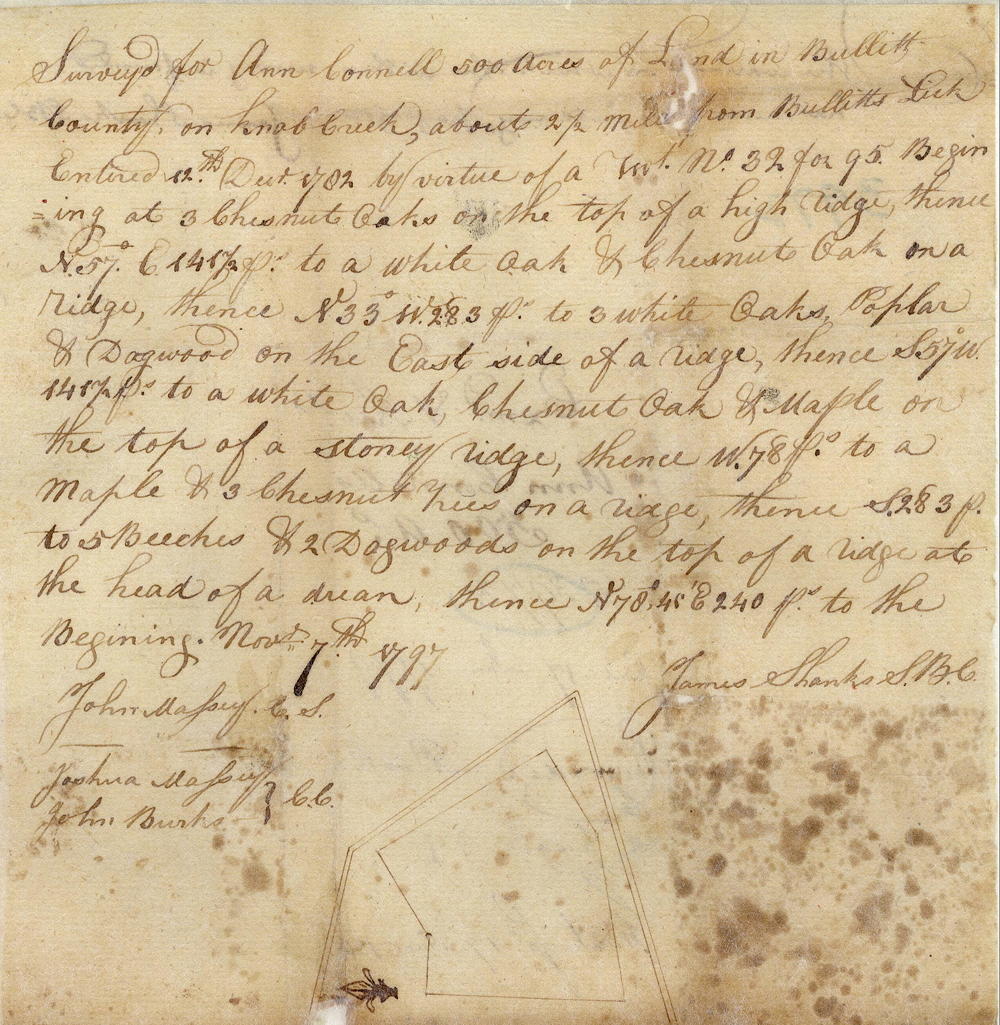 Surveyd for Ann Connell 500 Acres of Land in Bullitt
County, on Knob Creek, about 2½ Miles from Bullitts Lick
Entired 12th Decr. 1782 by virtue of a Wt. No. 32 for 95. Begin
=ing at 3 Chesnut Oaks on the top of a high ridge, thence
N.57° E 141½ ps. to a white Oak & Chesnut Oak on a
ridge, thence N33° W.283 ps. to 3 white Oaks, Poplar
& Dogwood on the East side of a ridge, thence S.57°W.
141½ ps. to a white Oak, Chesnut Oak & Maple on
the top of a stoney ridge, thence W.78 ps. to a
Maple & 3 Chesnut trees on a ridge, thence S.283 p.
to 5 Beeches & 2 Dogwoods on the top of a ridge at
the head of a drean, thence N78° 45' E 240 ps. to the
Begining. Novr. 7th 1797
James Shanks S.B.C.
John Massey. C. S.
Joshua Massey
John Burks } C.C.